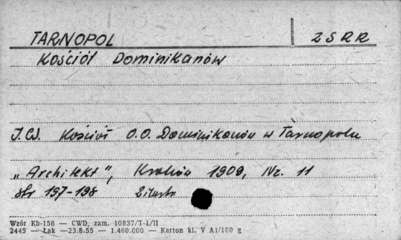 TARNOPOL ZSRR
Kościół Dominikanów
J.W. Kościół O.O. Dominikanów w Tarnopolu
„Architekt", Kraków 1909, Nr. 11
str 197-198 2 ilustr
Wzór Kb-156 — CWD, zam. 10837/T-I/II
2445 — Łąk —23.8.55 — 1.460.000 — Karton kl. V A1/100 g